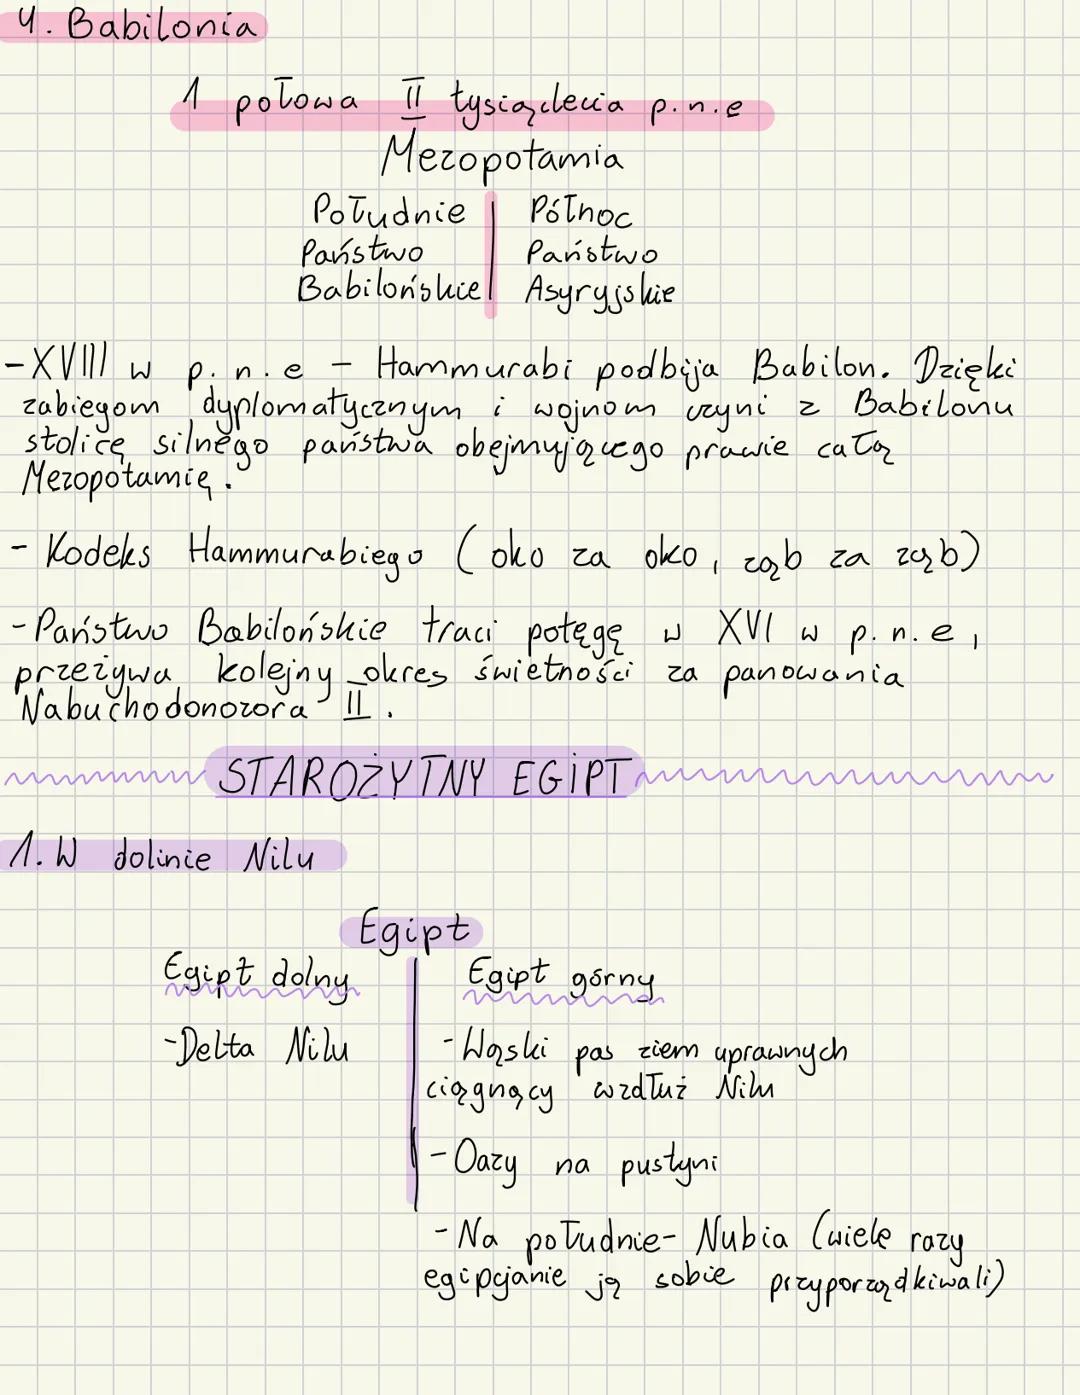 4. Babilonia
1 połowa II tysiąclecia p.n.e
Mezopotamia
Południe | Północ
Państwo Państwo
Babilońskie Asyryjskie
- XVIII w p.n.e - Hammurabi podbija Babilon. Dzięki
zabiegom dyplomatycznym i wojnom czyni z Babilonu
stolicę silnego państwa obejmującego prawie całą
Mezopotamię.
- Kodeks Hammurabiego (oko za oko, ząb za ząb)
- Państwo Babilońskie traci potęgę w XVI w p.n.e,
przeżywa kolejny okres świetności za panowania
Nabuchodonozora II.
STAROŻYTNY EGIPT
1. W dolinie Nilu
Egipt
Egipt dolny Egipt górny
- Delta Nilu - Wąski pas ziem uprawnych
ciągnący wzdłuż Nilu
- Oazy na pustyni
- Na południe - Nubia (wiele razy
egipcjanie ją sobie przyporządkiwali)